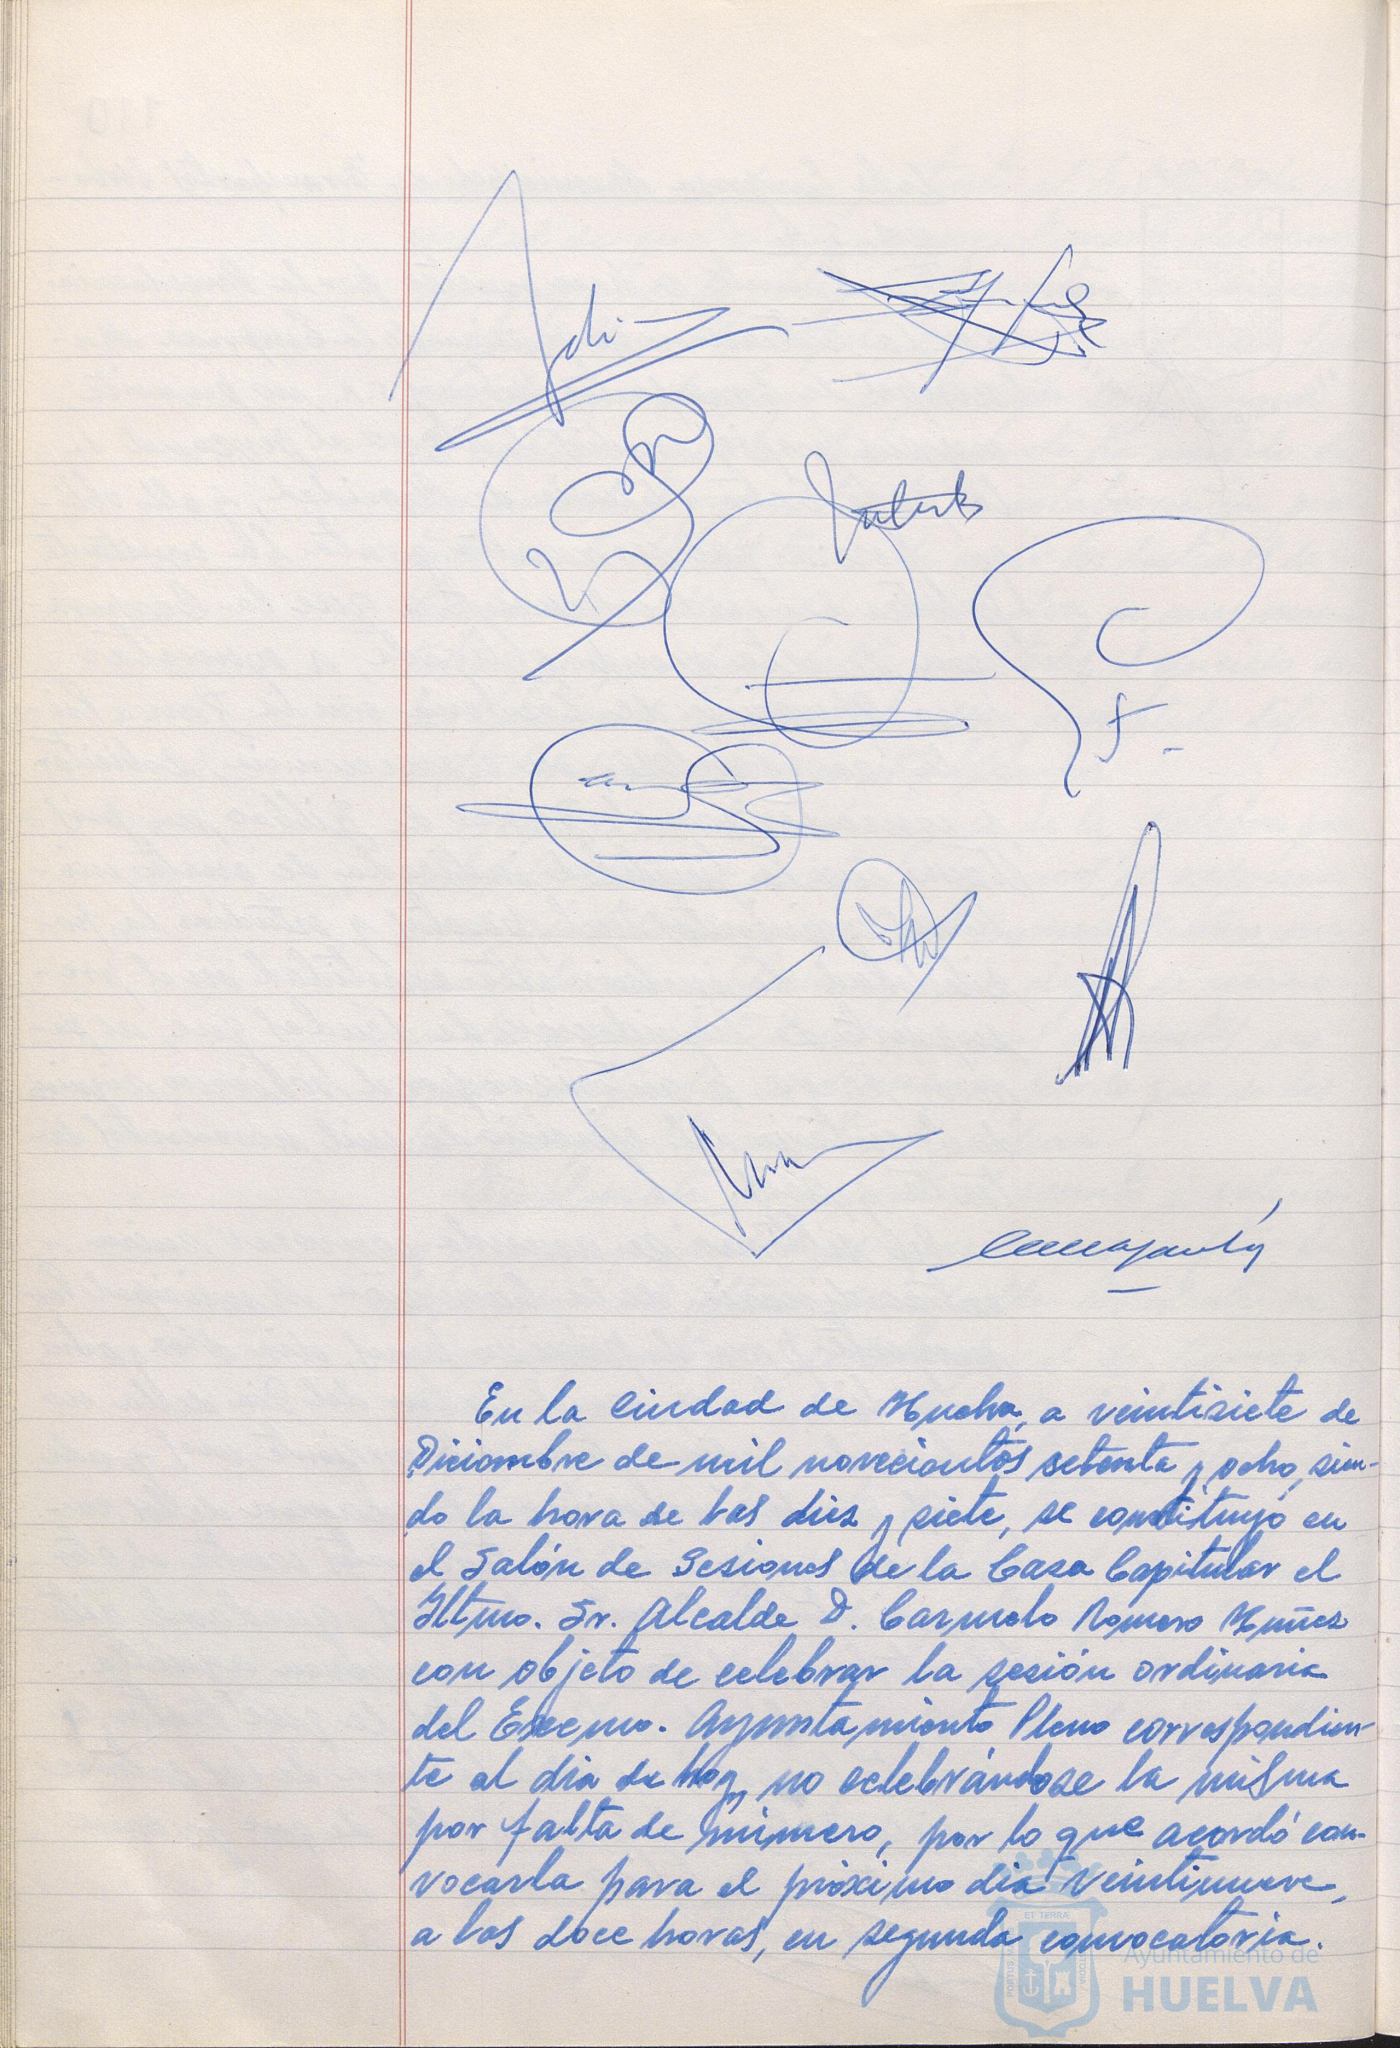 En la Ciudad de Huelva, a veintisiete de
Diciembre de mil novecientos setenta y ocho, sien-
do la hora de las diez y siete, se constituyó en
el Salón de Sesiones de la Casa Capitular el
Iltmo. Sr. Alcalde D. Carmelo Romero Muñoz
con objeto de celebrar la sesión ordinaria
del Excmo. Ayuntamiento Pleno correspondien-
te al dia de hoy, no celebrándose la misma
por falta de número, por lo que acordó con-
vocarla para el próximo dia veintinueve,
a las doce horas, en segunda convocatoria.
ET TERRAE
PORTUS
CUSTODIA
Ayuntamiento de
HUELVA